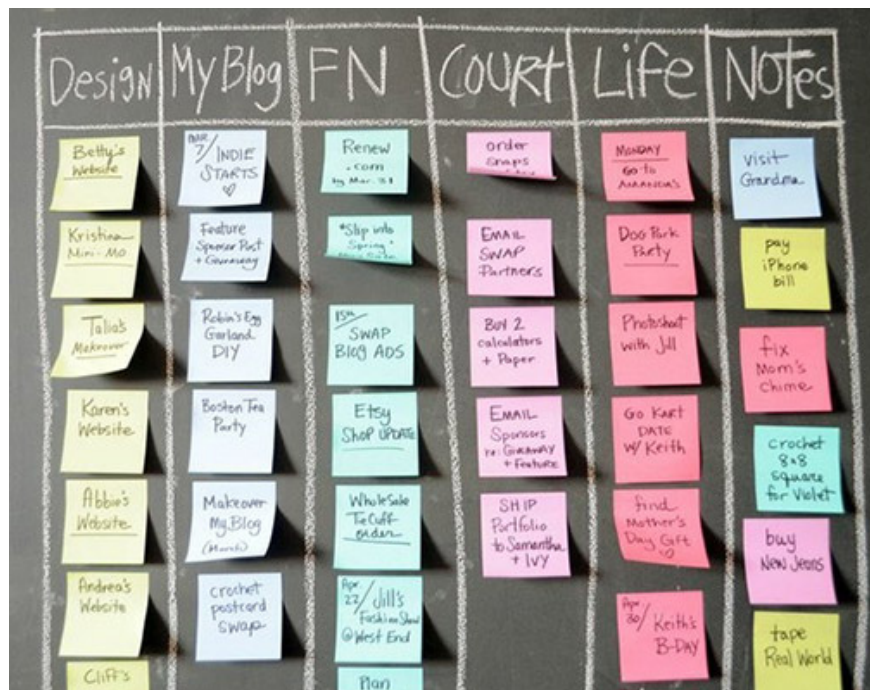 Design
My Blog
FN
Court
Life
Notes
Betty's
Website
Kristina
Mini-Mo
Talia's
Makeover
Karen's
Website
Abbie's
Website
Andrea's
Website
Cliff's
MAR.
7/ INDIE
STARTS
Feature
Sponsor Post
+ Giveaway
Robin's Egg
Garland
DIY
Boston Tea
Party
Makeover
My Blog
(March)
crochet
postcard
swap
Renew
.com
by Mar. 31
"Slip into
Spring"
15th/
SWAP
Blog ADS
Etsy
SHOP UPDATE
Wholesale
TeCuff
order
Apr.
22/ Jill's
Fashion Show
@ West End
Plan
order
snaps
EMAIL
SWAP
Partners
Buy 2
calculators
+ Paper
EMAIL
Sponsors
re: Giveaway
+ Feature
SHIP
Portfolio
to Samantha
+ IVY
MONDAY
Go to
AMANDA'S
Dog Park
Party
Photoshoot
with Jill
Go Kart
DATE
w/ Keith
find
Mother's
Day Gift
Apr.
30/ Keith's
B-DAY
visit
Grandma
pay
iPhone
bill
fix
Mom's
chime
crochet
8x8
square
for Violet
buy
New Jeans
tape
Real World